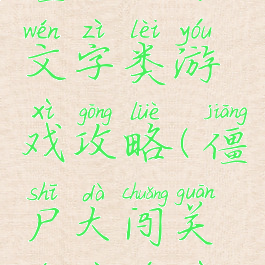 wén zì lèi yóu
文字类游
xì gōng lüè jiāng
戏攻略(僵
shī dà chuǎng guān
尸大闯关